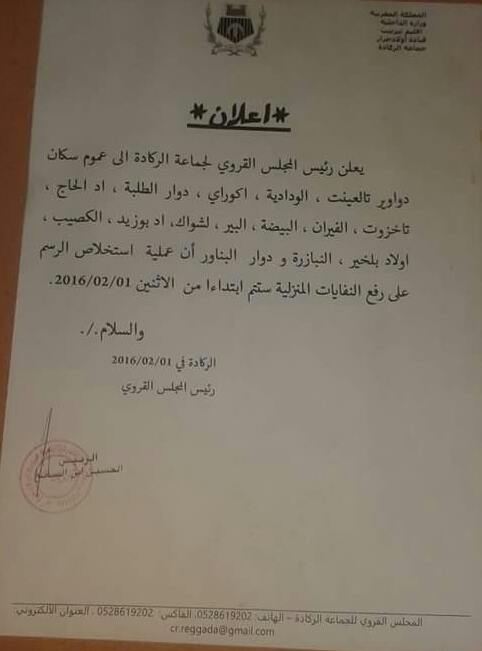 المملكة المغربية
وزارة الداخلية
اقليم تيزنيت
قيادة أولاد جرار
جماعة الركادة
*اعلان*
يعلن رئيس المجلس القروي لجماعة الركادة الى عموم سكان
دواوير تالعينت ، الودادية ، اكوراي ، دوار الطلبة ، اد الحاج ،
تاخزوت ، الفيران ، البيضة ، البير ، لشواك، اد بوزيد ، الكصيب ،
اولاد بلخير ، النبازرة و دوار البناور أن عملية استخلاص الرسم
على رفع النفايات المنزلية ستتم ابتداءا من الاثنين 2016/02/01.
والسلام./.
الركادة في 2016/02/01
رئيس المجلس القروي
الرئيس
الحسين ابن السايح
المجلس القروي للجماعة الركادة – الهاتف: 0528619202، الفاكس: 0528619202 ، العنوان الألكتروني:
cr.reggada@gmail.com